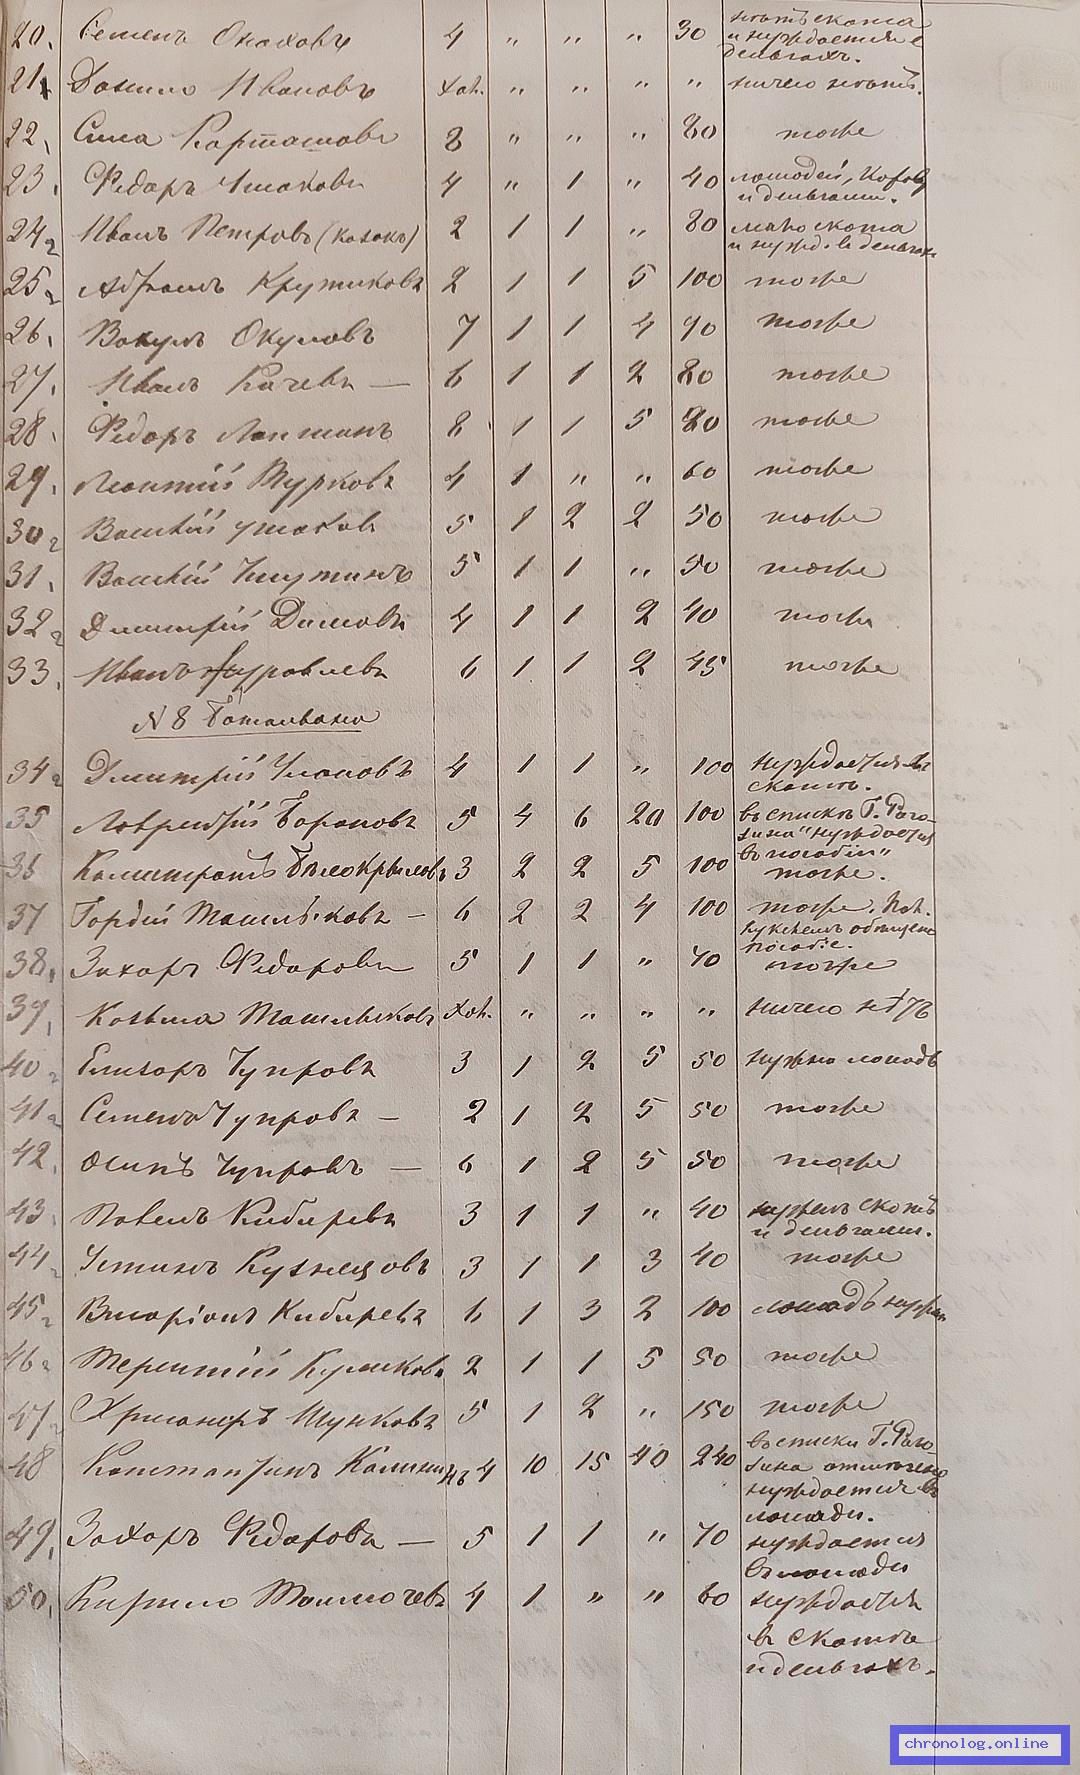 20. Семенъ 4 " " " 30 нѣтъ скота
и нуждается в
деньгахъ.
21. Данило Ивановъ Хол. " " " " ничего нѣтъ.
22. Сила Карташовъ 8 " " " 80 тоже
23. Федоръ Ушаковъ 4 " 1 " 40 лошадей, Коров
и деньгами.
24 Иванъ Петровъ (казакъ) 2 1 1 " 80 мало скота
и нужд. въ деньгах
25 Абрамъ Крутиковъ 2 1 1 5 100 тоже
26. Вакулъ Окуловъ 7 1 1 4 90 тоже
27. Иванъ Качевъ — 6 1 1 2 80 тоже
28. Федоръ Лапшинъ 8 1 1 5 80 тоже
29. Леонтій Турковъ 4 1 " " 60 тоже
30 Василій Ушаковъ 5 1 2 2 50 тоже
31. Василій 5 1 1 " 50 тоже
32 Дмитрій Димовъ 4 1 1 2 40 тоже
33. Иванъ Журавлевъ 6 1 1 2 45 тоже
N 8 Баталіона
34 Дмитрій 4 1 1 " 100 Нуждается въ
скотѣ.
35 Лаврентій Барановъ 5 4 6 20 100 въ спискѣ Г. Раго-
зина "нуждается
въ пособіи"
36 Калистратъ Бѣлокрыловъ 3 2 2 5 100 тоже.
37 Гордій Ташлыковъ — 6 2 2 4 100 тоже. Пол.
пособіе.
38. Захаръ Федоровъ 5 1 1 " 70 тоже
39. Козьма Ташлыковъ Хол. " " " " ничего нѣтъ
40 Елизаръ Чупровъ 3 1 2 5 50 нужна лошадь
41 Семенъ Чупровъ — 2 1 2 5 50 тоже
42. Осипъ Чупровъ — 6 1 2 5 50 тоже
43. Павелъ Кибиревъ 3 1 1 " 40 нужен скотъ
и деньгами.
44 Устинъ Кузнецовъ 3 1 1 3 40 тоже
45 Виссаріонъ Кибиревъ 6 1 3 2 100 лошадь нужна
46 Терентій Куликовъ 2 1 1 5 50 тоже
47 Шунковъ 5 1 2 " 150 тоже
48 Константинъ Калининъ 4 10 15 40 240 въ списки Г. Раго-
зина отмѣчено
нуждается въ
лошади.
49. Захаръ Федоровъ — 5 1 1 " 70 нуждается
въ лошади
50. Кирило Толмочевъ 4 1 " " 60 нуждается
въ скотѣ
и деньгахъ.
chronolog.online